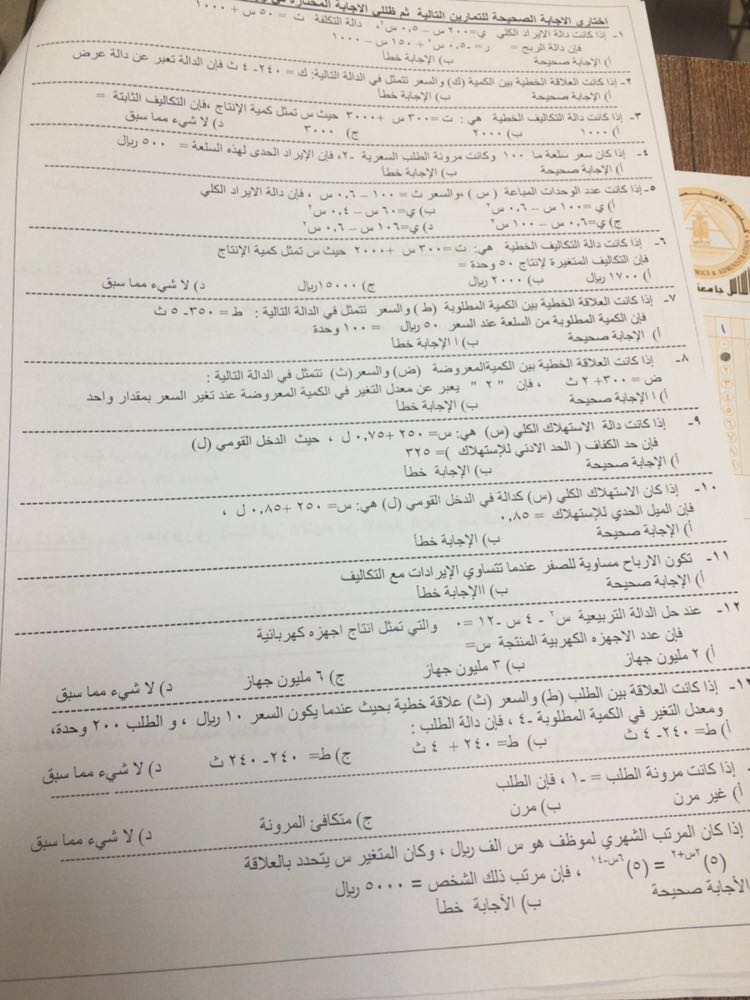 اختاري الاجابة الصحيحة للتمارين التالية ثم ظللي الاجابة المختارة في
١- إذا كانت دالة الايراد الكلي ي=٢٠٠ س – ٠,٥ س٢، دالة التكلفة ت = ٥٠ س + ١٠٠٠
فإن دالة الربح = ر= -٠,٥ س٢ + ١٥٠ س – ١٠٠٠
أ) الإجابة صحيحة ب) الإجابة خطأ
٢- إذا كانت العلاقة الخطية بين الكمية (ك) والسعر تتمثل في الدالة التالية: ك = ٢٤٠- ٤ ث فإن الدالة تعبر عن دالة عرض
أ) الإجابة صحيحة ب) الإجابة خطأ
٣- إذا كانت دالة التكاليف الخطية هي: ت =٣٠٠ س +٣٠٠٠ حيث س تمثل كمية الإنتاج ،فإن التكاليف الثابتة =
أ) ١٠٠٠ ب) ٢٠٠٠ ج) ٣٠٠٠ د) لا شيء مما سبق
٤- إذا كان سعر سلعة ما ١٠٠ وكانت مرونة الطلب السعرية -٢، فإن الإيراد الحدى لهذه السلعة = ٥٠٠ ريال
أ) الإجابة صحيحة ب) الإجابة خطأ
٥- إذا كانت عدد الوحدات المباعة ( س ) ،والسعر ث = ١٠٠ – ٠,٦ س ، فإن دالة الايراد الكلي
أ) ي= ١٠٠ س – ٠,٦ س٢ ب) ي=٦٠ س – ٠,٤ س٢
ج) ي=٠,٦ س – ١٠٠ س٢ د) ي=١٠٦ س – ٠,٦ س٢
٦- إذا كانت دالة التكاليف الخطية هي: ت =٣٠٠ س +٢٠٠٠ حيث س تمثل كمية الإنتاج
فإن التكاليف المتغيرة لإنتاج ٥٠ وحدة =
أ) ١٧٠٠ ريال ب) ٢٠٠٠ ريال ج) ١٥٠٠٠ريال د) لا شيء مما سبق
٧- إذا كانت العلاقة الخطية بين الكمية المطلوبة (ط ) والسعر تتمثل في الدالة التالية : ط = ٣٥٠- ٥ ث
فإن الكمية المطلوبة من السلعة عند السعر ٥٠ ريال = ١٠٠ وحدة
أ) الإجابة صحيحة ب) ا الإجابة خطأ
٨- إذا كانت العلاقة الخطية بين الكميةالمعروضة (ض) والسعر(ث) تتمثل في الدالة التالية :
ض = ٣٠٠+ ٢ ث ، فإن " ٢ " يعبر عن معدل التغير في الكمية المعروضة عند تغير السعر بمقدار واحد
أ) ا الإجابة صحيحة ب) الإجابة خطأ
٩- إذا كانت دالة الاستهلاك الكلي (س) هي: س= ٢٥٠ +٠,٧٥ ل ، حيث الدخل القومي (ل)
فإن حد الكفاف ( الحد الادني للإستهلاك )= ٣٢٥
أ) الإجابة صحيحة ب) الإجابة خطأ
١٠- إذا كان الاستهلاك الكلي (س) كدالة في الدخل القومي (ل) هي: س= ٢٥٠ +٠,٨٥ ل ،
فإن الميل الحدي للإستهلاك = ٠,٨٥
أ) الإجابة صحيحة ب) الإجابة خطأ
١١- تكون الارباح مساوية للصفر عندما تتساوي الإيرادات مع التكاليف
أ) الإجابة صحيحة ب) االإجابة خطأ
١٢- عند حل الدالة التربيعية س٢ - ٤ س -١٢ =٠ والتي تمثل انتاج اجهزه كهربائية
فإن عدد الاجهزه الكهربية المنتجة س=
أ) ٢ مليون جهاز ب) ٣ مليون جهاز ج) ٦ مليون جهاز د) لا شيء مما سبق
١٣- إذا كانت العلاقة بين الطلب (ط) والسعر (ث) علاقة خطية بحيث عندما يكون السعر ١٠ ريال ، و الطلب ٢٠٠ وحدة،
ومعدل التغير في الكمية المطلوبة -٤ ، فإن دالة الطلب :
أ) ط= ٢٤٠- ٤ ث ب) ط= ٢٤٠ + ٤ ث ج) ط= ٢٤٠- ٢٤٠ ث د) لا شيء مما سبق
- إذا كانت مرونة الطلب = -١ ، فإن الطلب
أ) غير مرن ب) مرن ج) متكافئ المرونة د) لا شيء مما سبق
إذا كان المرتب الشهري لموظف هو س الف ريال ، وكان المتغير س يتحدد بالعلاقة
(٥)٢س+٢ = (٥)٦س-١٤ ، فإن مرتب ذلك الشخص = ٥٠٠٠ ريال
الأجابة صحيحة ب) الأجابة خطأ